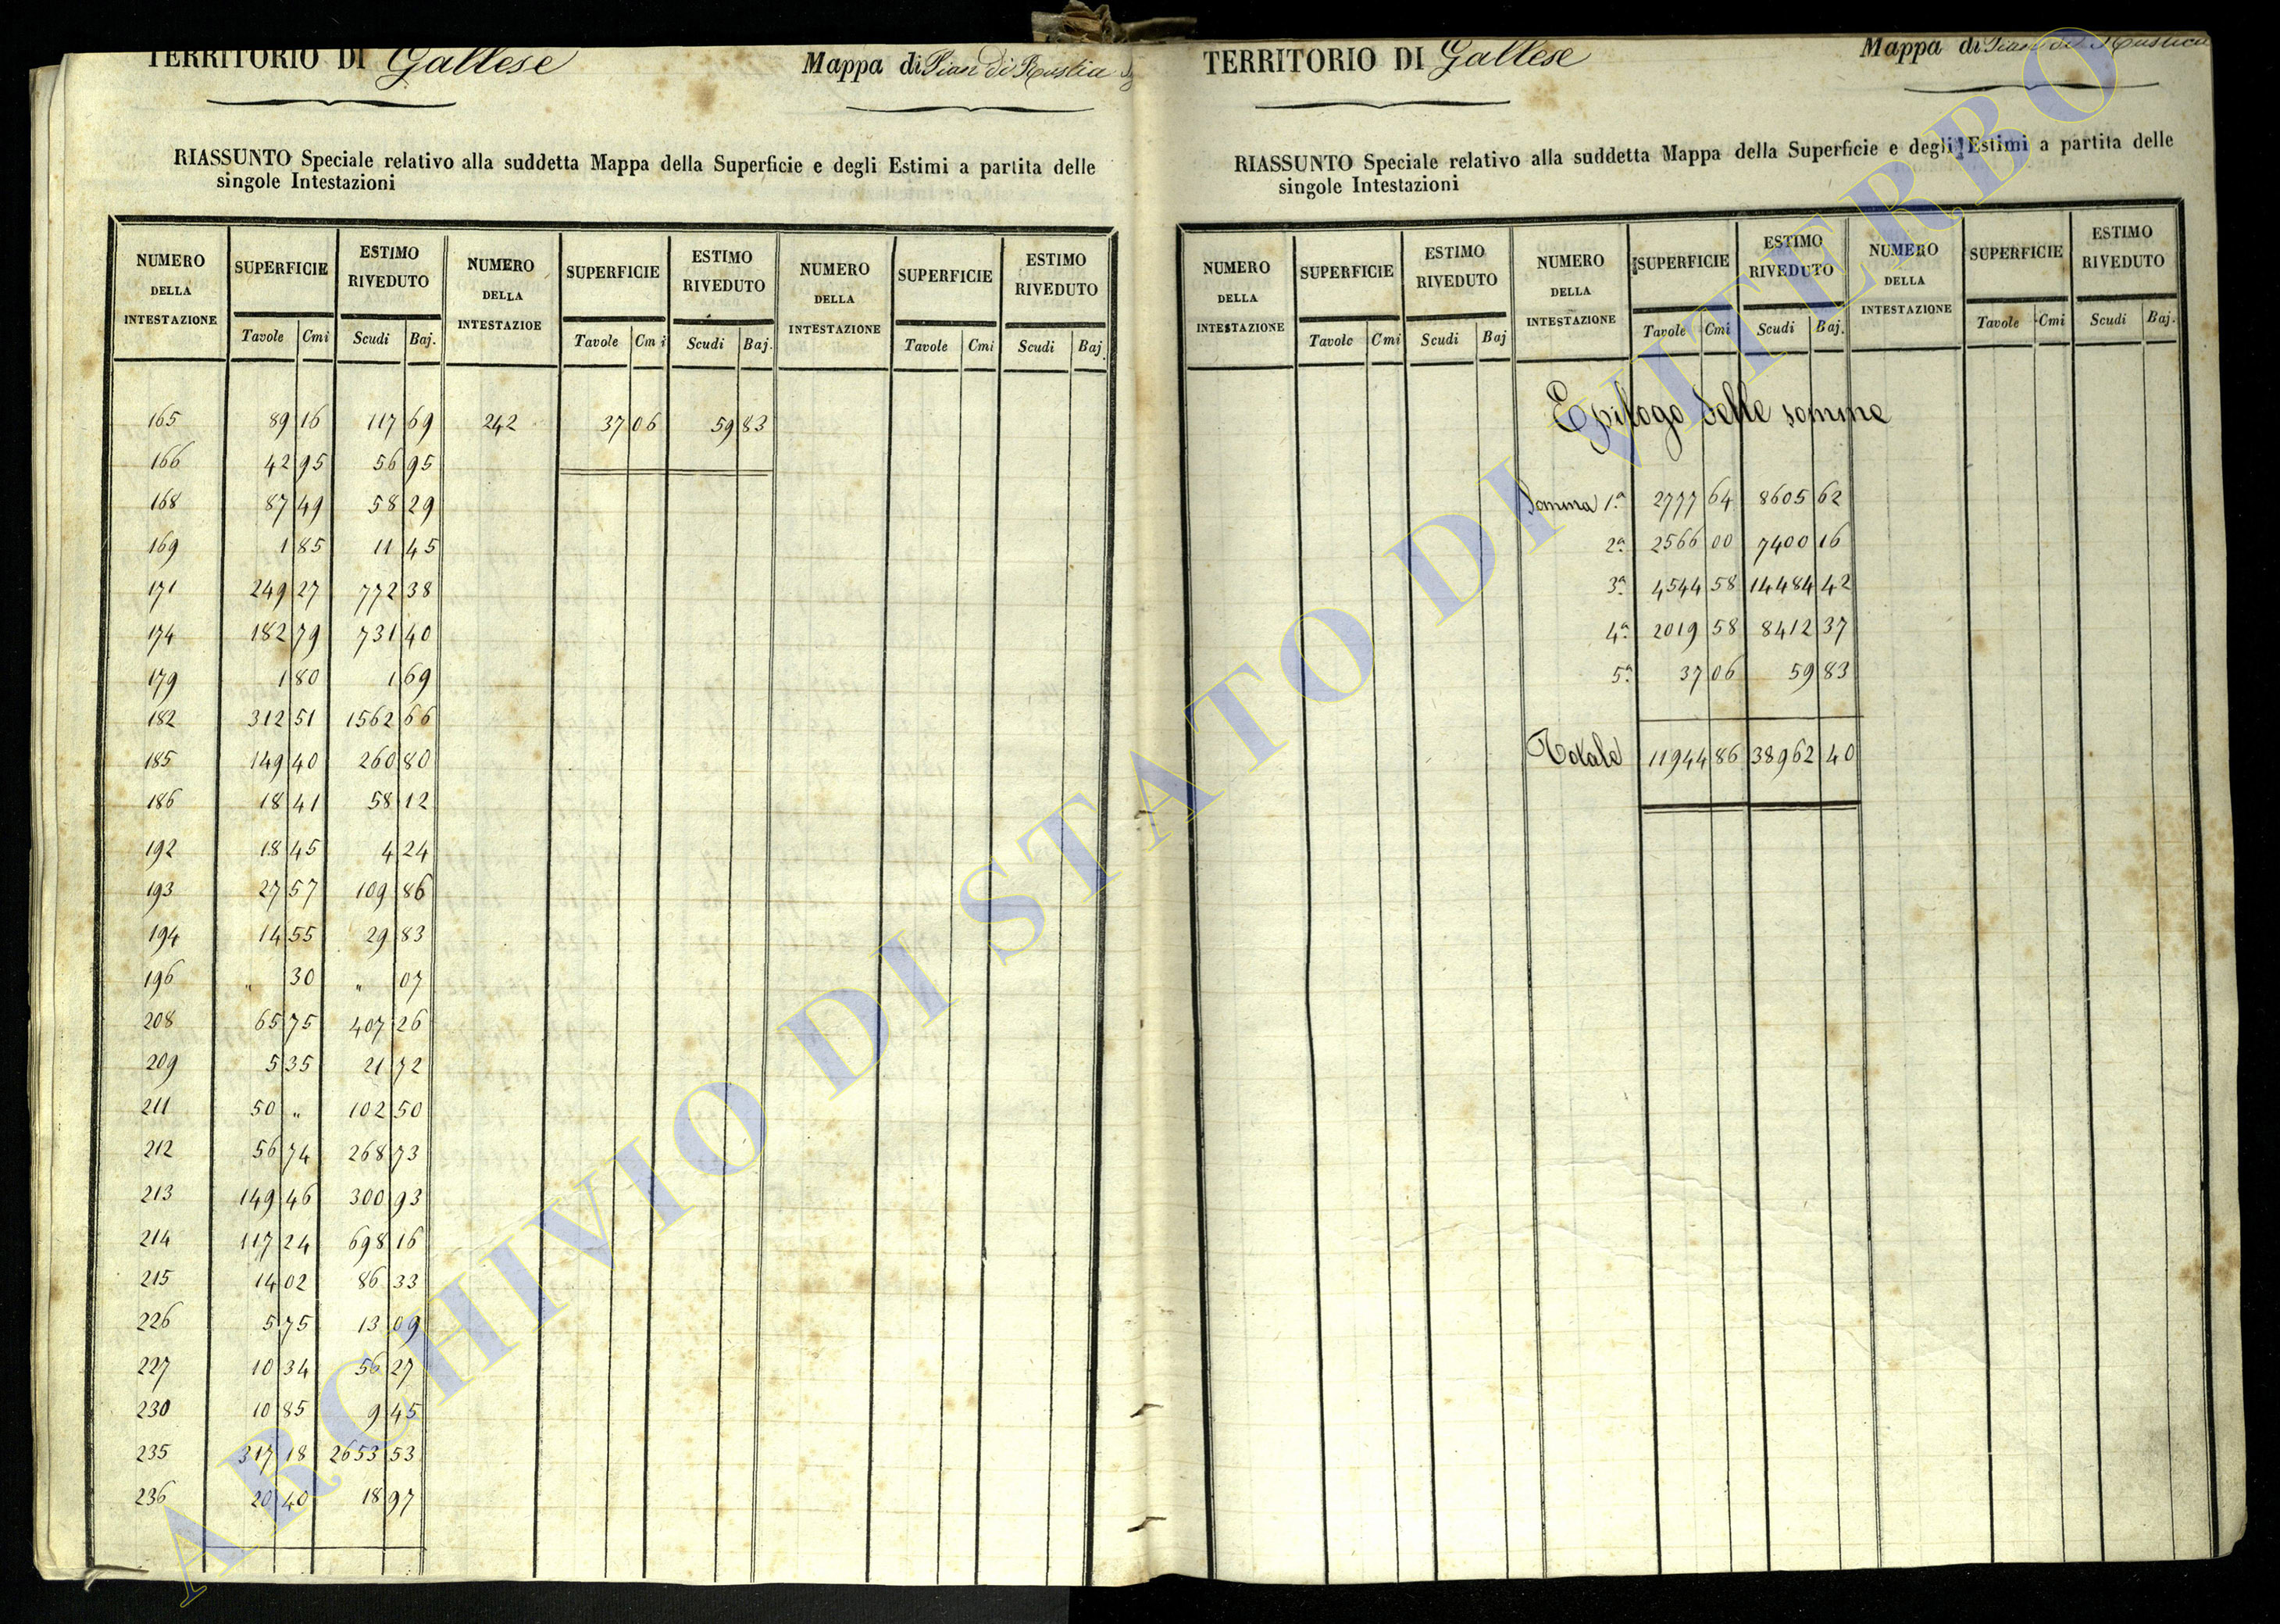 TERRITORIO DI Gallese
Mappa di Pian di Rustica
RIASSUNTO Speciale relativo alla suddetta Mappa della Superficie e degli Estimi a partita delle
singole Intestazioni
NUMERO DELLA INTESTAZIONE SUPERFICIE ESTIMO RIVEDUTO NUMERO DELLA INTESTAZIOE SUPERFICIE ESTIMO RIVEDUTO NUMERO DELLA INTESTAZIONE SUPERFICIE ESTIMO RIVEDUTO
Tavole Cmi Scudi Baj. Tavole Cmi Scudi Baj. Tavole Cmi Scudi Baj.
165 89 16 117 69 242 37 06 59 83
166 42 95 56 95
168 87 49 58 29
169 1 85 11 45
171 249 27 772 38
174 182 79 731 40
179 1 80 1 69
182 312 51 1562 66
185 149 40 260 80
186 18 41 58 12
192 18 45 4 24
193 27 57 109 86
194 14 55 29 83
196 " 30 " 07
208 65 75 407 26
209 5 35 21 72
211 50 " 102 50
212 56 74 268 73
213 149 46 300 93
214 117 24 698 16
215 14 02 86 33
226 5 75 13 09
227 10 34 56 27
230 10 85 9 45
235 317 18 2653 53
236 20 40 18 97
TERRITORIO DI Gallese
Mappa di Pian di Rustica
RIASSUNTO Speciale relativo alla suddetta Mappa della Superficie e degli Estimi a partita delle
singole Intestazioni
NUMERO DELLA INTESTAZIONE SUPERFICIE ESTIMO RIVEDUTO NUMERO DELLA INTESTAZIONE SUPERFICIE ESTIMO RIVEDUTO NUMERO DELLA INTESTAZIONE SUPERFICIE ESTIMO RIVEDUTO
Tavole Cmi Scudi Baj Tavole Cmi Scudi Baj. Tavole Cmi Scudi Baj.
Epilogo delle somme
Somma 1.ª 2777 64 8605 62
2.ª 2566 00 7400 16
3.ª 4544 58 14484 42
4.ª 2019 58 8412 37
5.ª 37 06 59 83
Totale 11944 86 38962 40
ARCHIVIO DI STATO DI VITERBO